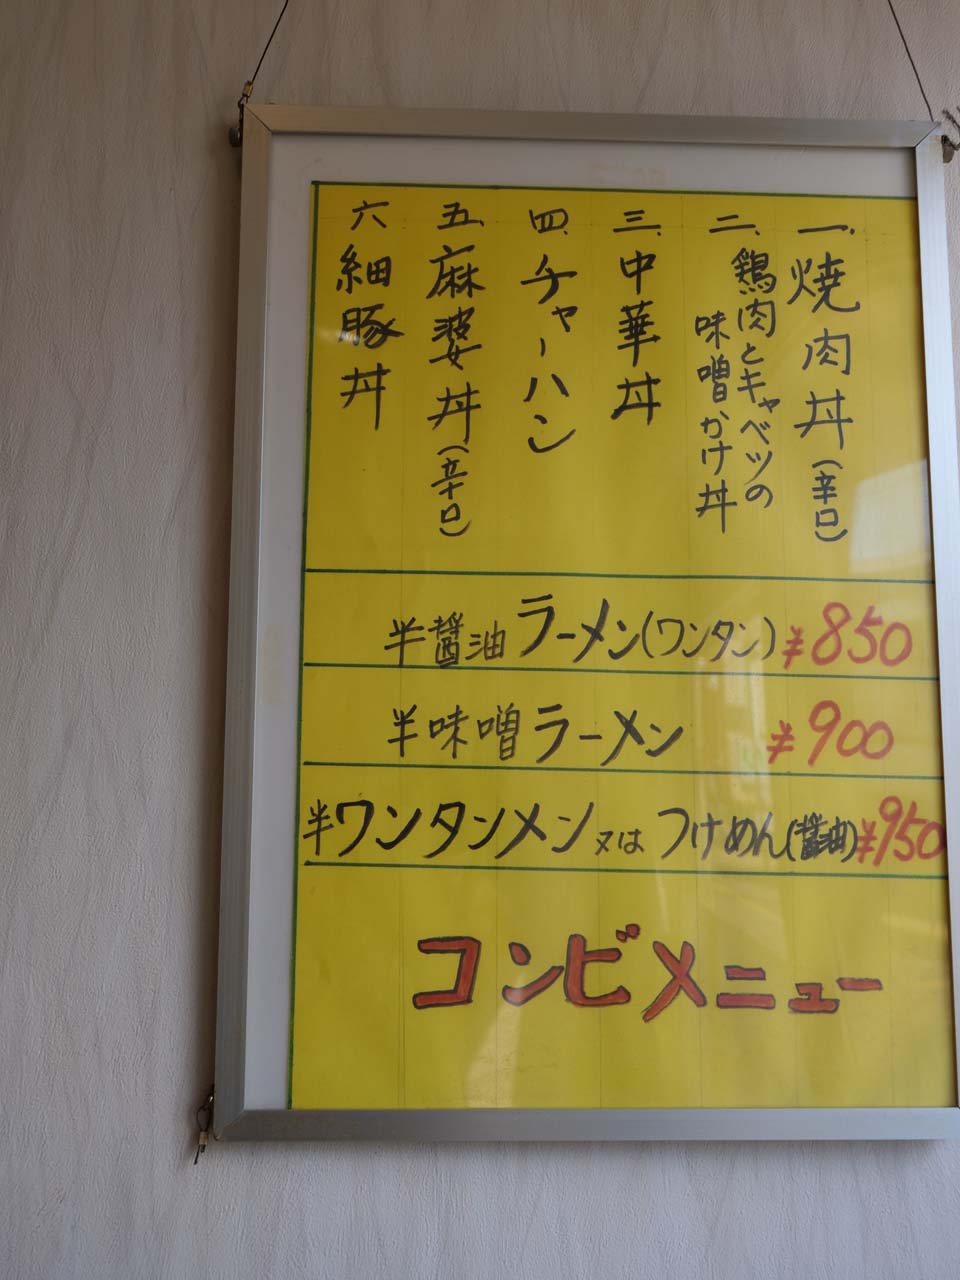 一、焼肉丼(辛口)
二、鶏肉とキャベツの
味噌かけ丼
三、中華丼
四、チャーハン
五、麻婆丼(辛口)
六 細豚丼
半醤油ラーメン(ワンタン) ¥850
半味噌ラーメン ¥900
半ワンタンメン又はつけめん(醤油) ¥950
コンビメニュー